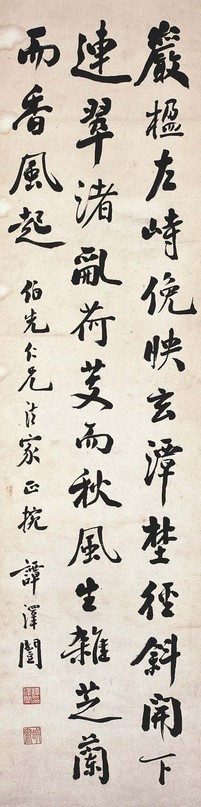 巖楹左峙俛映玄潭埜徑斜開下
連翠渚亂荷芰而秋風生雜芝蘭
而香風起
伯先仁兄法家正捥
譚澤闓